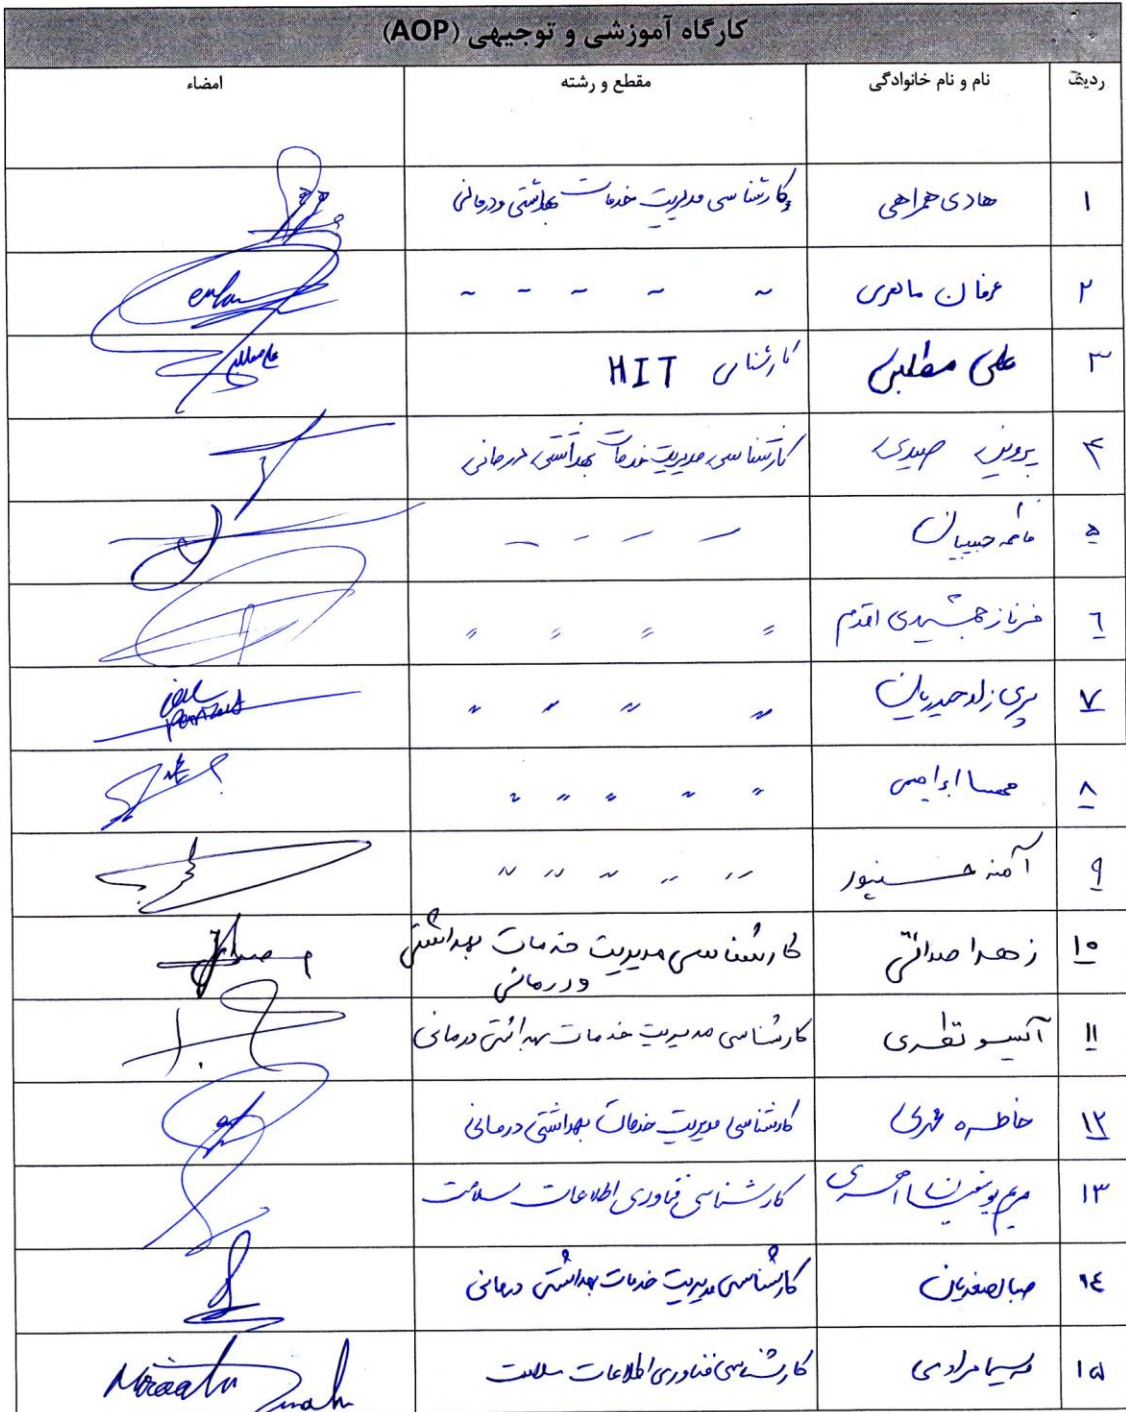 کارگاه آموزشی و توجیهی (AOP)
ردیف نام و نام خانوادگی مقطع و رشته امضاء
۱ هادی همراهی کارشناسی مدیریت خدمات بهداشتی و درمانی
۲ عرفان " " " " "
۳ علی مطلبی کارشناسی HIT
۴ پروین صیدی کارشناسی مدیریت خدمات بهداشتی درمانی
۵ فاطمه حبیبیان - - - -
۶ فرناز جمشیدی اقدم " " " "
۷ پری زاد حیدریان " " " "
۸ مهسا ابراهیمی " " " " "
۹ آمنه حسنپور " " " " "
۱۰ زهرا صداقتی کارشناسی مدیریت خدمات بهداشتی
و درمانی
۱۱ آکیسو کارشناسی مدیریت خدمات بهداشتی درمانی
۱۲ خاطره کارشناسی مدیریت خدمات بهداشتی درمانی
۱۳ مریم کارشناسی فناوری اطلاعات سلامت
۱۴ صبا صفدریان کارشناسی مدیریت خدمات بهداشتی درمانی
۱۵ سیما مرادی کارشناسی فناوری اطلاعات سلامت